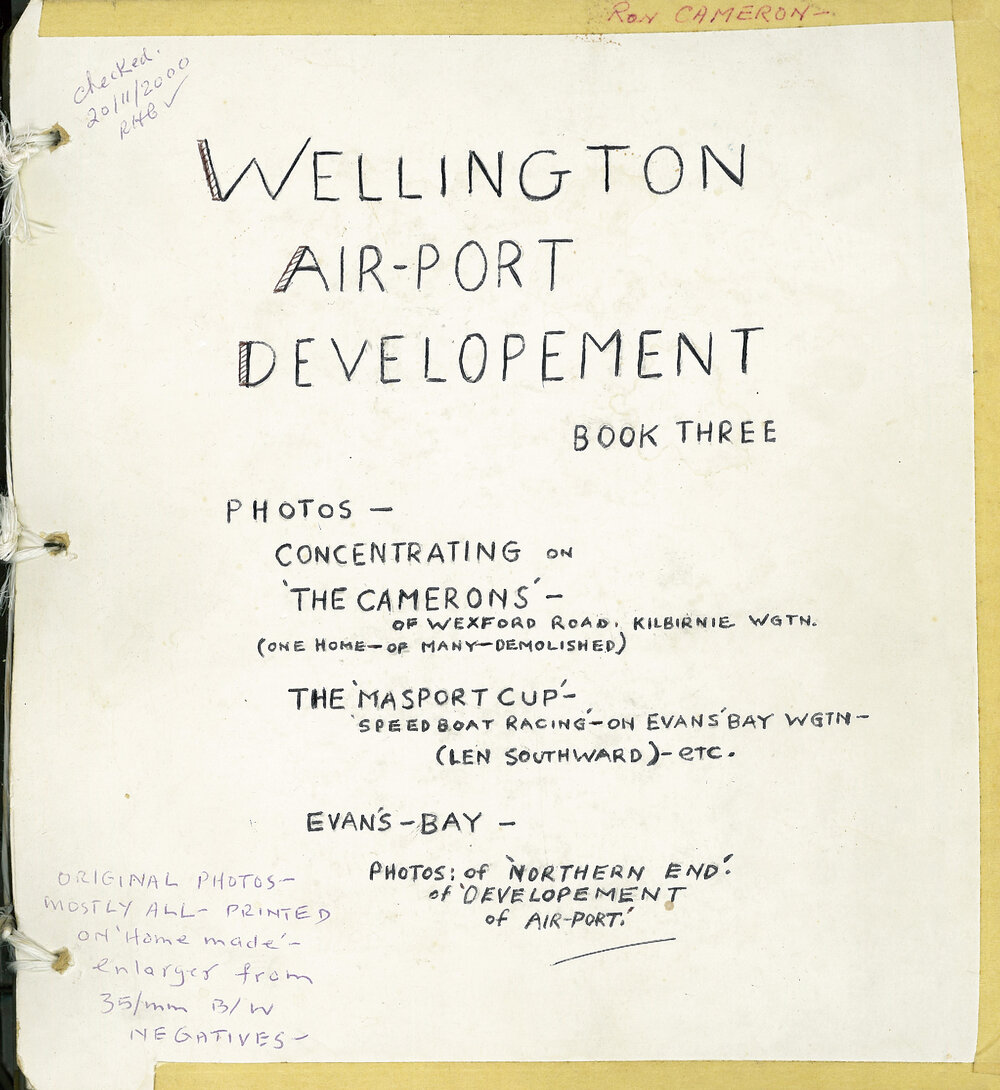 RON CAMERON-
Checked.
20/11/2000
RHB ✓
WELLINGTON
AIR-PORT
DEVELOPEMENT
BOOK THREE
PHOTOS -
CONCENTRATING ON
'THE CAMERONS' -
OF WEXFORD ROAD. KILBIRNIE WGTN.
(ONE HOME-OF MANY-DEMOLISHED)
THE 'MASPORT CUP'-
'SPEEDBOAT RACING'-ON EVANS'BAY WGTN-
(LEN SOUTHWARD)-etc.
EVAN'S-BAY -
PHOTOS: of 'NORTHERN END'.
of 'DEVELOPEMENT
of AIR-PORT.'
ORIGINAL PHOTOS-
MOSTLY ALL- PRINTED
ON 'Home made'-
enlarger from
35/mm B/W
NEGATIVES-